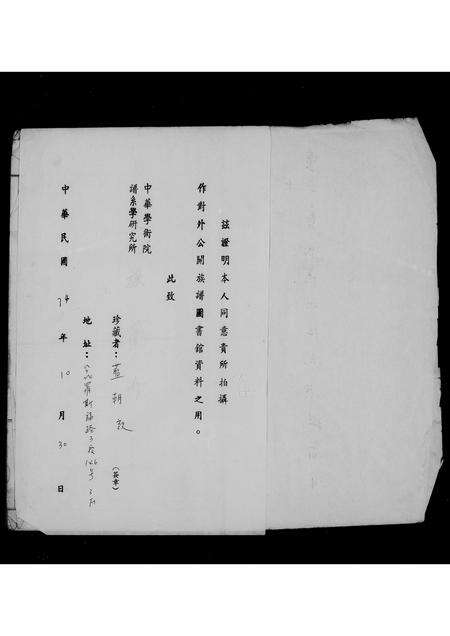 茲證明本人同意貴所拍攝
作對外公開族譜圖書館資料之用。
此致
中華學術院
譜系學研究所
珍藏者：藍朝敦（簽章）
地址：羅斯福路3段126号
中華民國74年10月30日